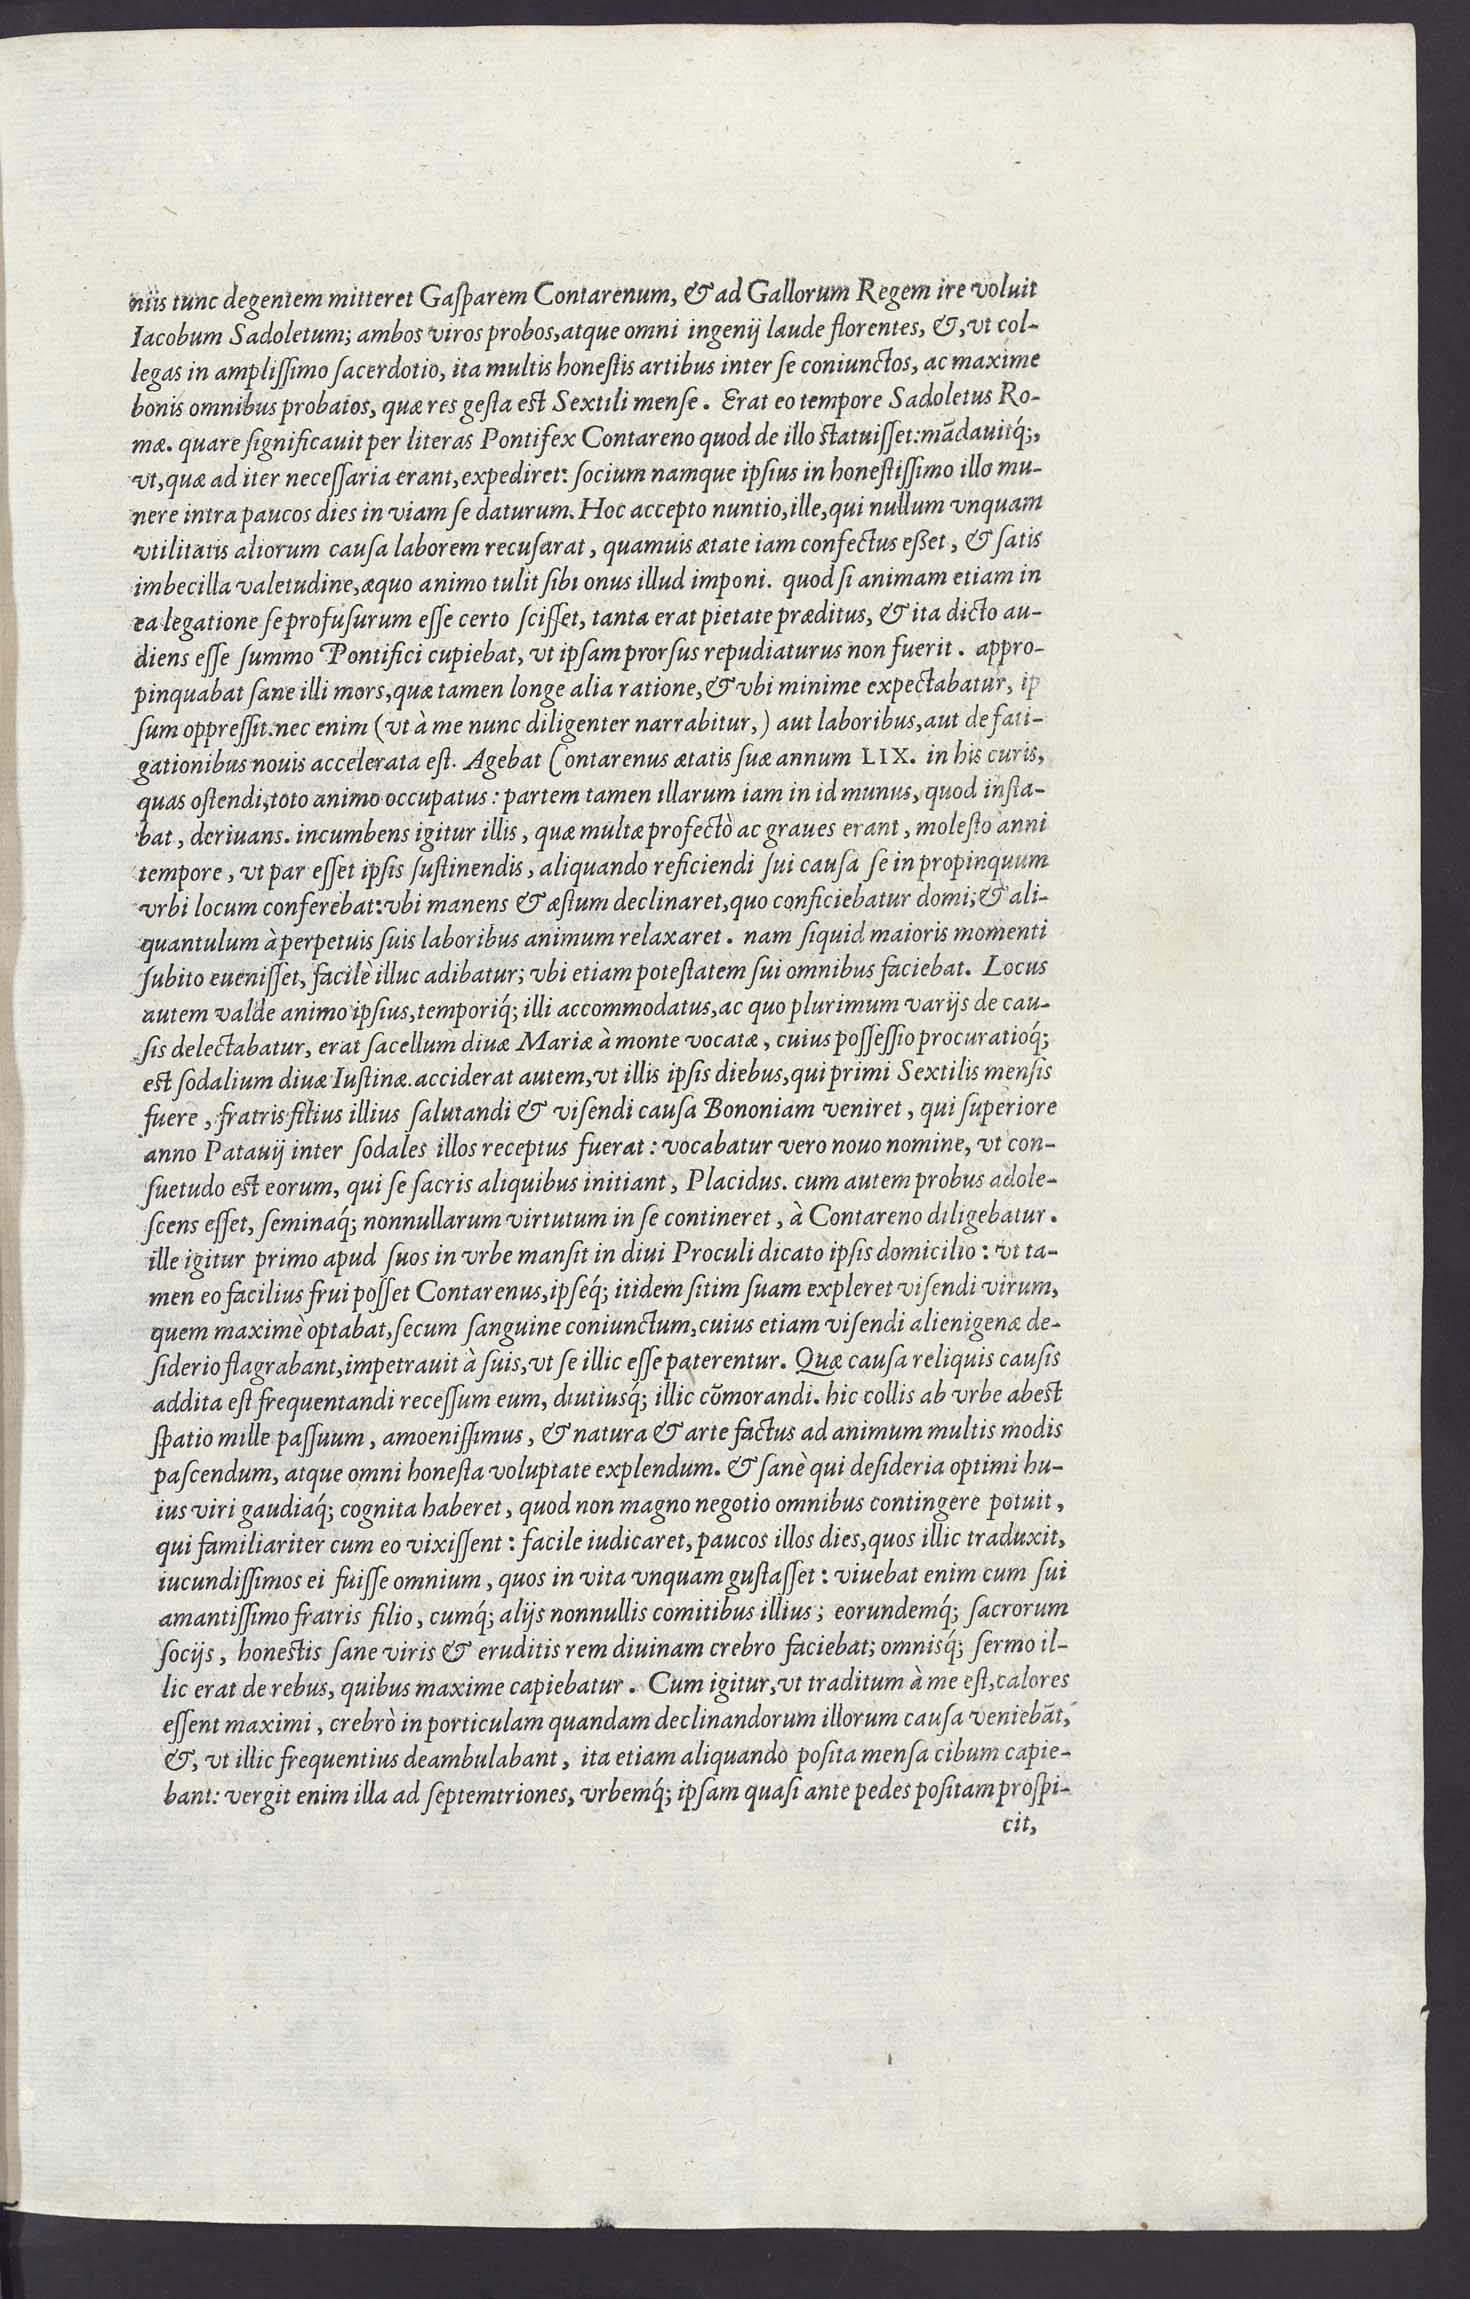 niis tunc degentem mitteret Gaſparem Contarenum, & ad Gallorum Regem ire voluit
Iacobum Sadoletum; ambos viros probos, atque omni ingenij laude florentes, &, vt col-
legas in ampliſſimo ſacerdotio, ita multis honeſtis artibus inter ſe coniunctos, ac maxime
bonis omnibus probatos, quæ res geſta est Sextili menſe. Erat eo tempore Sadoletus Ro-
mæ. quare ſignificauit per literas Pontifex Contareno quod de illo statuiſſet: mādauitq́;,
vt, quæ ad iter neceſſaria erant, expediret: ſocium namque ipſius in honeſtiſſimo illo mu-
nere intra paucos dies in viam ſe daturum. Hoc accepto nuntio, ille, qui nullum vnquam
vtilitatis aliorum cauſa laborem recuſarat, quamuis ætate iam confectus eßet, & ſatis
imbecilla valetudine, æquo animo tulit ſibi onus illud imponi. quod ſi animam etiam in
ea legatione ſe profuſurum eſſe certo ſciſſet, tanta erat pietate præditus, & ita dicto au-
diens eſſe ſummo Pontifici cupiebat, vt ipſam prorſus repudiaturus non fuerit. appro-
pinquabat ſane illi mors, quæ tamen longe alia ratione, & vbi minime expectabatur, ip
ſum oppreſſit. nec enim (vt à me nunc diligenter narrabitur,) aut laboribus, aut defati-
gationibus nouis accelerata eſt. Agebat Contarenus ætatis ſuæ annum LIX. in his curis,
quas oſtendi, toto animo occupatus: partem tamen illarum iam in id munus, quod inſta-
bat, deriuans. incumbens igitur illis, quæ multæ profectò ac graues erant, moleſto anni
tempore, vt par eſſet ipſis ſuſtinendis, aliquando reficiendi ſui cauſa ſe in propinquum
vrbi locum conferebat: vbi manens & æſtum declinaret, quo conficiebatur domi; & ali-
quantulum à perpetuis ſuis laboribus animum relaxaret. nam ſiquid maioris momenti
ſubito eueniſſet, facilè illuc adibatur; vbi etiam poteſtatem ſui omnibus faciebat. Locus
autem valde animo ipſius, temporiq́; illi accommodatus, ac quo plurimum varijs de cau-
ſis delectabatur, erat ſacellum diuæ Mariæ à monte vocatæ, cuius poſſeſſio procuratioq́;
est ſodalium diuæ Iuſtinæ. acciderat autem, vt illis ipſis diebus, qui primi Sextilis menſis
fuere, fratris filius illius ſalutandi & viſendi cauſa Bononiam veniret, qui ſuperiore
anno Patauij inter ſodales illos receptus fuerat: vocabatur vero nouo nomine, vt con-
ſuetudo est eorum, qui ſe ſacris aliquibus initiant, Placidus. cum autem probus adole-
ſcens eſſet, ſeminaq́; nonnullarum virtutum in ſe contineret, à Contareno diligebatur.
ille igitur primo apud ſuos in vrbe manſit in diui Proculi dicato ipſis domicilio: vt ta-
men eo facilius frui poſſet Contarenus, ipſeq́; itidem ſitim ſuam expleret viſendi virum,
quem maximè optabat, ſecum ſanguine coniunctum, cuius etiam viſendi alienigenæ de-
ſiderio flagrabant, impetrauit à ſuis, vt ſe illic eſſe paterentur. Quæ cauſa reliquis cauſis
addita eſt frequentandi receſſum eum, diutiusq́; illic cōmorandi. hic collis ab vrbe abest
ſpatio mille paſſuum, amoeniſſimus, & natura & arte factus ad animum multis modis
paſcendum, atque omni honeſta voluptate explendum. & ſanè qui deſideria optimi hu-
ius viri gaudiaq́; cognita haberet, quod non magno negotio omnibus contingere potuit,
qui familiariter cum eo vixiſſent: facile iudicaret, paucos illos dies, quos illic traduxit,
iucundiſſimos ei fuiſſe omnium, quos in vita vnquam guſtaſſet: viuebat enim cum ſui
amantiſſimo fratris filio, cumq́; alijs nonnullis comitibus illius; eorundemq́; ſacrorum
ſocijs, honestis ſane viris & eruditis rem diuinam crebro faciebat; omnisq́; ſermo il-
lic erat de rebus, quibus maxime capiebatur. Cum igitur, vt traditum à me eſt, calores
eſſent maximi, crebrò in porticulam quandam declinandorum illorum cauſa veniebāt,
&, vt illic frequentius deambulabant, ita etiam aliquando poſita menſa cibum capie-
bant: vergit enim illa ad ſeptemtriones, vrbemq́; ipſam quaſi ante pedes poſitam proſpi-
cit,